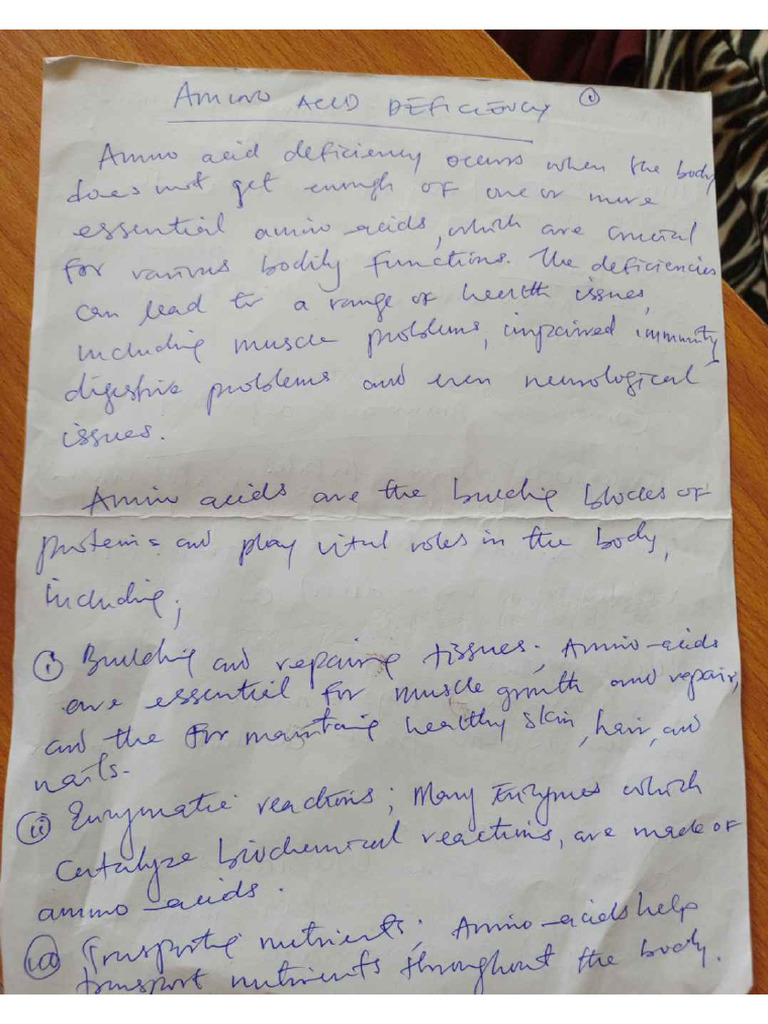 AMINO ACID DEFICIENCY ①
Amino acid deficiency occurs when the body
does not get enough of one or more
essential amino acids, which are crucial
for various bodily functions. The deficiencies
can lead to a range of health issues,
including muscle problems, impaired immunity
digestive problems and even neurological
issues.
Amino acids are the building blocks of
proteins and play vital roles in the body,
including;
(i) Building and repairing tissues; Amino-acids
are essential for muscle growth and repair,
and the for maintaing healthy skin, hair, and
nails.
(ii) Enzymatic reactions; Many Enzymes which
Catalyze biochemical reactions, are made of
amino-acids.
(iii) Transporting nutrients; Amino-acids help
transport nutrients throughout the body.